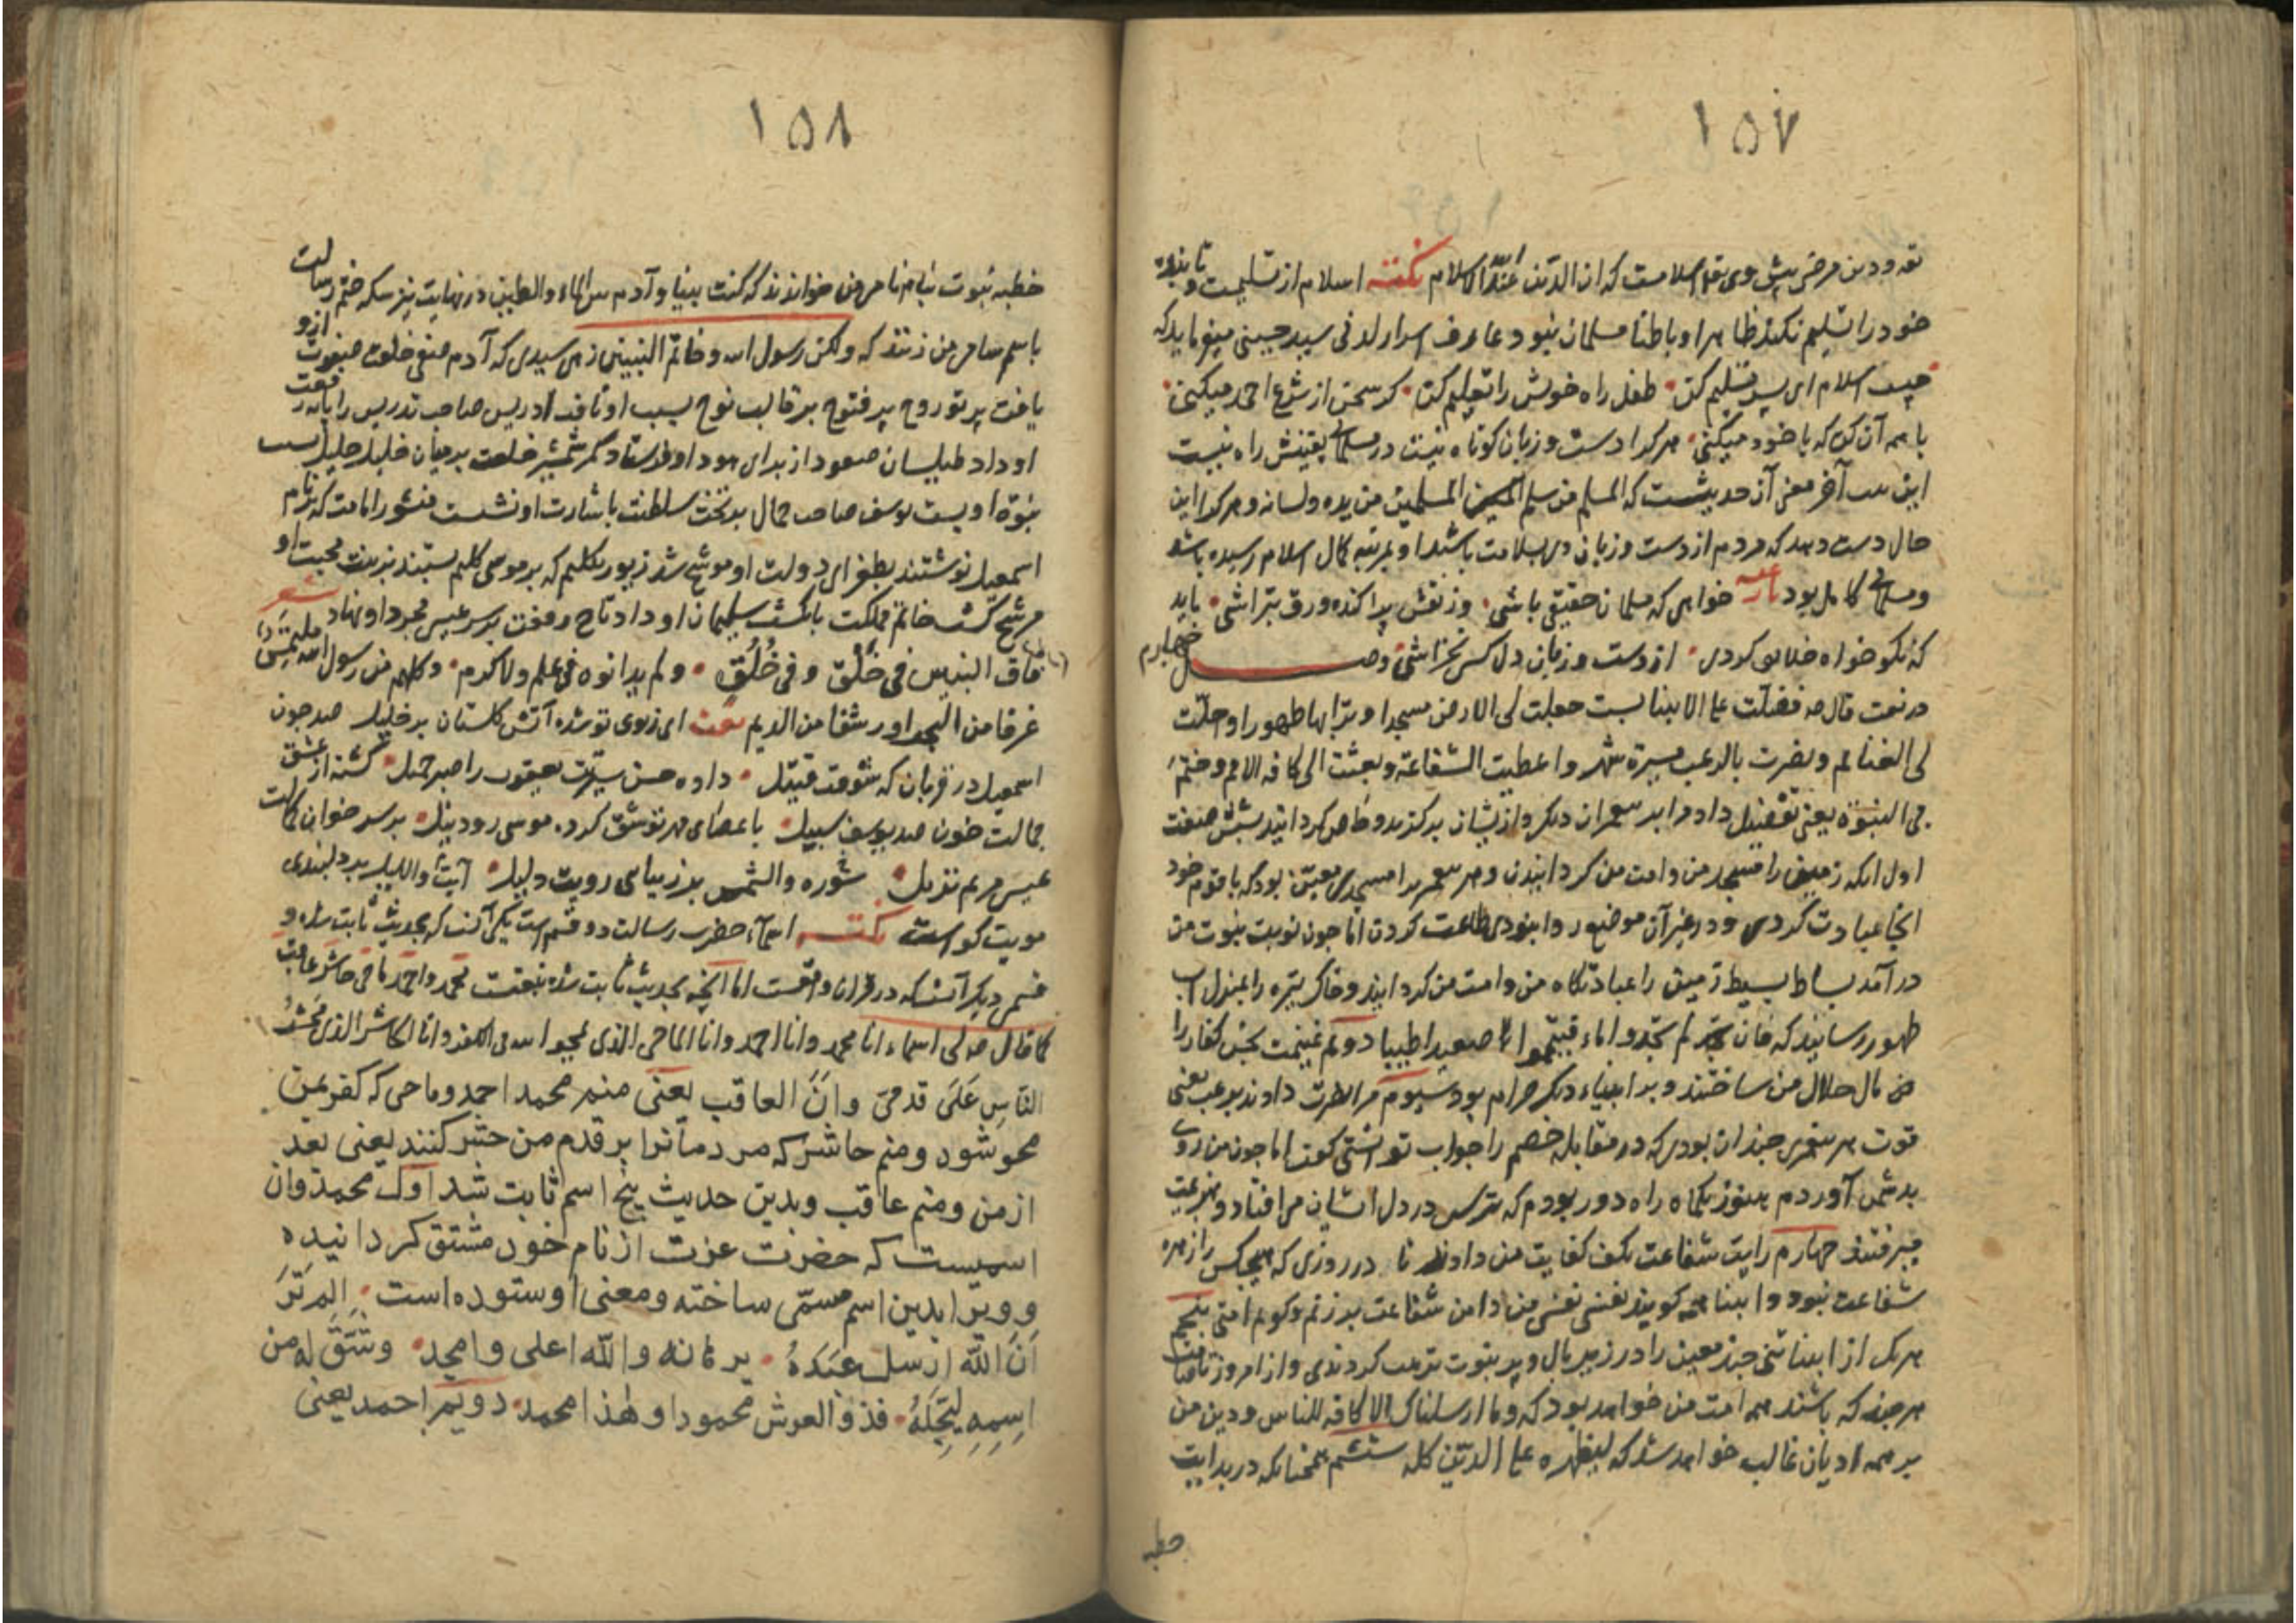 ١٥٧
خود را تسلیم نکند ظاهرا و باطنا مسلمان نبود عارف اسرار لدنی سید حسینی میفرماید که
چیست اسلام ای پسر تسلیم کن طفل راه خویش را تعلیم کن گر سخن از شرع احمد میکنی
با همه آن کن که با خود میکنی هر کرا دست و زبان کوتاه نیست در مسلمانی یقینش راه نیست
این بیت آخر معنی آن حدیثست که المسلم من سلم المسلمین من یده ولسانه و هر کرا این
حال دست دهد که مردم از دست و زبان وی بسلامت باشند او بمرتبه کمال اسلام رسیده باشد
و مسلمانی کامل بود خواهی که مسلمان حقیقی باشی وز نقش پراکنده ورق بتراشی باید
که نکو خواه خلایق گردی از دست و زبان دل کس نخراشی وصل چهارم
در نعت قال ص فضلت علی الانبیا بست جعلت لی الارض مسجدا و ترابها طهورا و احلت
لی الغنائم و نصرت بالرعب مسیرة شهر و اعطیت الشفاعة و بعثت الی کافه الامم و ختم
بی النبوة یعنی تفضیل داد مرا بر پیغمبران دیگر و از یشان برگزید و خاص گردانید بشش صفت
اول آنکه زمین را مسجد من و امت من گردانیدن و هر پیغمبر را مسجدی معین بود که با قوم خود
آنجا عبادت کردی و در غیر آن موضع روا نبودی طاعت کردن اما چون نوبت نبوت من
درآمد بساط بسیط زمین را عبادتگاه من و امت من گردانید و خاک تیره را بمنزل آب
طهور رسانید که فان لم تجدوا ماء فتیمموا صعیدا طیبا دوم غنیمت بخش کفار را
من مال حلال من ساختند و بر انبیاء دیگر حرام بود سیوم مرا نصرت دادند برعب یعنی
قوت هر پیغمبری چندان بودی که در مقابله خصم را جواب توانستی گفت اما چون من روی
بدشمن آوردم هنوز یکماه راه دور بودم که ترس در دل ایشان می افتاد و بهزیمت
میرفتند چهارم رایت شفاعت بکف کفایت من دادند تا در روزی که هیچکس را زهره
شفاعت نبود و انبیا همه گویند نفسی نفسی من دامن شفاعت بر زنم و گویم امتی پنجم
هر یک از انبیا شی چند معین را در زیر بال و پر نبوت تربیت کردندی و از امروز تا قیامت
هر چند که باشند همه امت من خواهد بود که وما ارسلناک الا کافه للناس و دین من
بر همه ادیان غالب خواهد شد که لیظهره علی الدین کله ششم همچنانکه در بدایت
خطبه
١٥٨
خطبه نبوت بنام نامی من خواندند که کنت نبیا و آدم بین الماء والطین در نهایت نیز سکه ختم رسالت
باسم سامی من زدند که ولکن رسول الله و خاتم النبیین زهی سیدی که آدم صفی خلعت صفوت ازو
یافت پرتو روح پر فتوح بر قالب نوح بسبب او تافت ادریس صاحب تدریس را پایه رفعت
او داد طیلسان صعود از برای هود او فرستاد کمر شمشیر خلعت بر میان خلیل جلیل بست
نبوة او بست یوسف صاحب جمال بر تخت سلطنت باشارت او نشست منشور امامت که بنام
اسمعیل نوشتند بطغرای دولت او موشح شد زیور تکلیم که بر موسی کلیم بستند بزینت محبت او
مرشح گشت خاتم مملکت بانگشت سلیمان او داد تاج رفعت بر سر عیسی مجرد او نهاد شعر
فاق النبیین فی خَلْق و فی خُلُق ولم یدانوه فی علم ولا کرم وکلهم من رسول الله ملتمس
غرفا من البحر او رشفا من الدیم نعت ای ز بوی تو شده آتش گلستان بر خلیل صد چون
اسمعیل در قربان گه شوقت قتیل داده حسن سیرتت یعقوب را صبر جمیل گشته از عشق
جمالت خون صد یوسف سبیل با عصای مهر تو شق کرده موسی رود نیل بر سر خوان کمالت
عیسی مریم نزیل سوره والشمس بر زیبای رویت دلیل آیت واللیل بر دلبندی
مویت گواست نکته اسماء حضرت رسالت دو قسم است یکی آنست که بحدیث ثابت شده و
قسمی دیگر آنست که در قرآن واقعست اما آنچه بحدیث ثابت شده محمد و احمد ماحی حاشر عاقب
کما قال ص لی اسماء انا محمد وانا احمد وانا الماحی الذی یمحو الله بی الکفر وانا الحاشر الذی یحشر
النّاسِ عَلَی قدمیّ وانَا العاقب یعنی منم محمد احمد و ماحی که کفر بمن
محو شود و منم حاشر که مردمانرا بر قدم من حشر کنند یعنی بعد
از من و منم عاقب و بدین حدیث پنج اسم ثابت شد اول محمد و آن
اسمیست که حضرت عزت از نام خود مشتق گردانیده
و ویرا بدین اسم مسمّی ساخته و معنی او ستوده است المرتَرَ
اَنَ الله ارسل عَبدَهُ ببرهانه والله اعلی وامجد وشَقَّ له من
اسمِهِ لیُجِلَّهُ فذو العرش محمود وهذا محمد دویم احمد یعنی